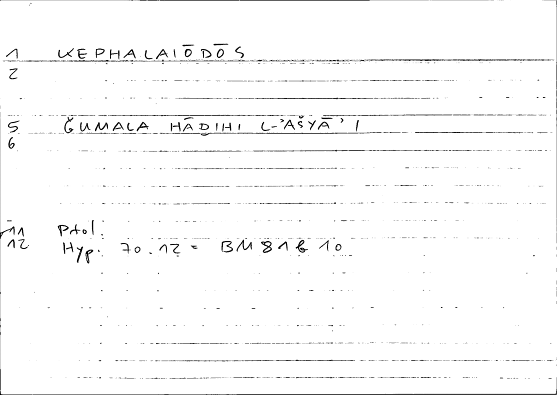 1 KEPHALAIŌDŌS
2
5 ǦUMALA HĀḎIHI L-'AŠYĀ'I
6
11 Ptol.
12 Hyp. 70.12 = BM 81 b 10